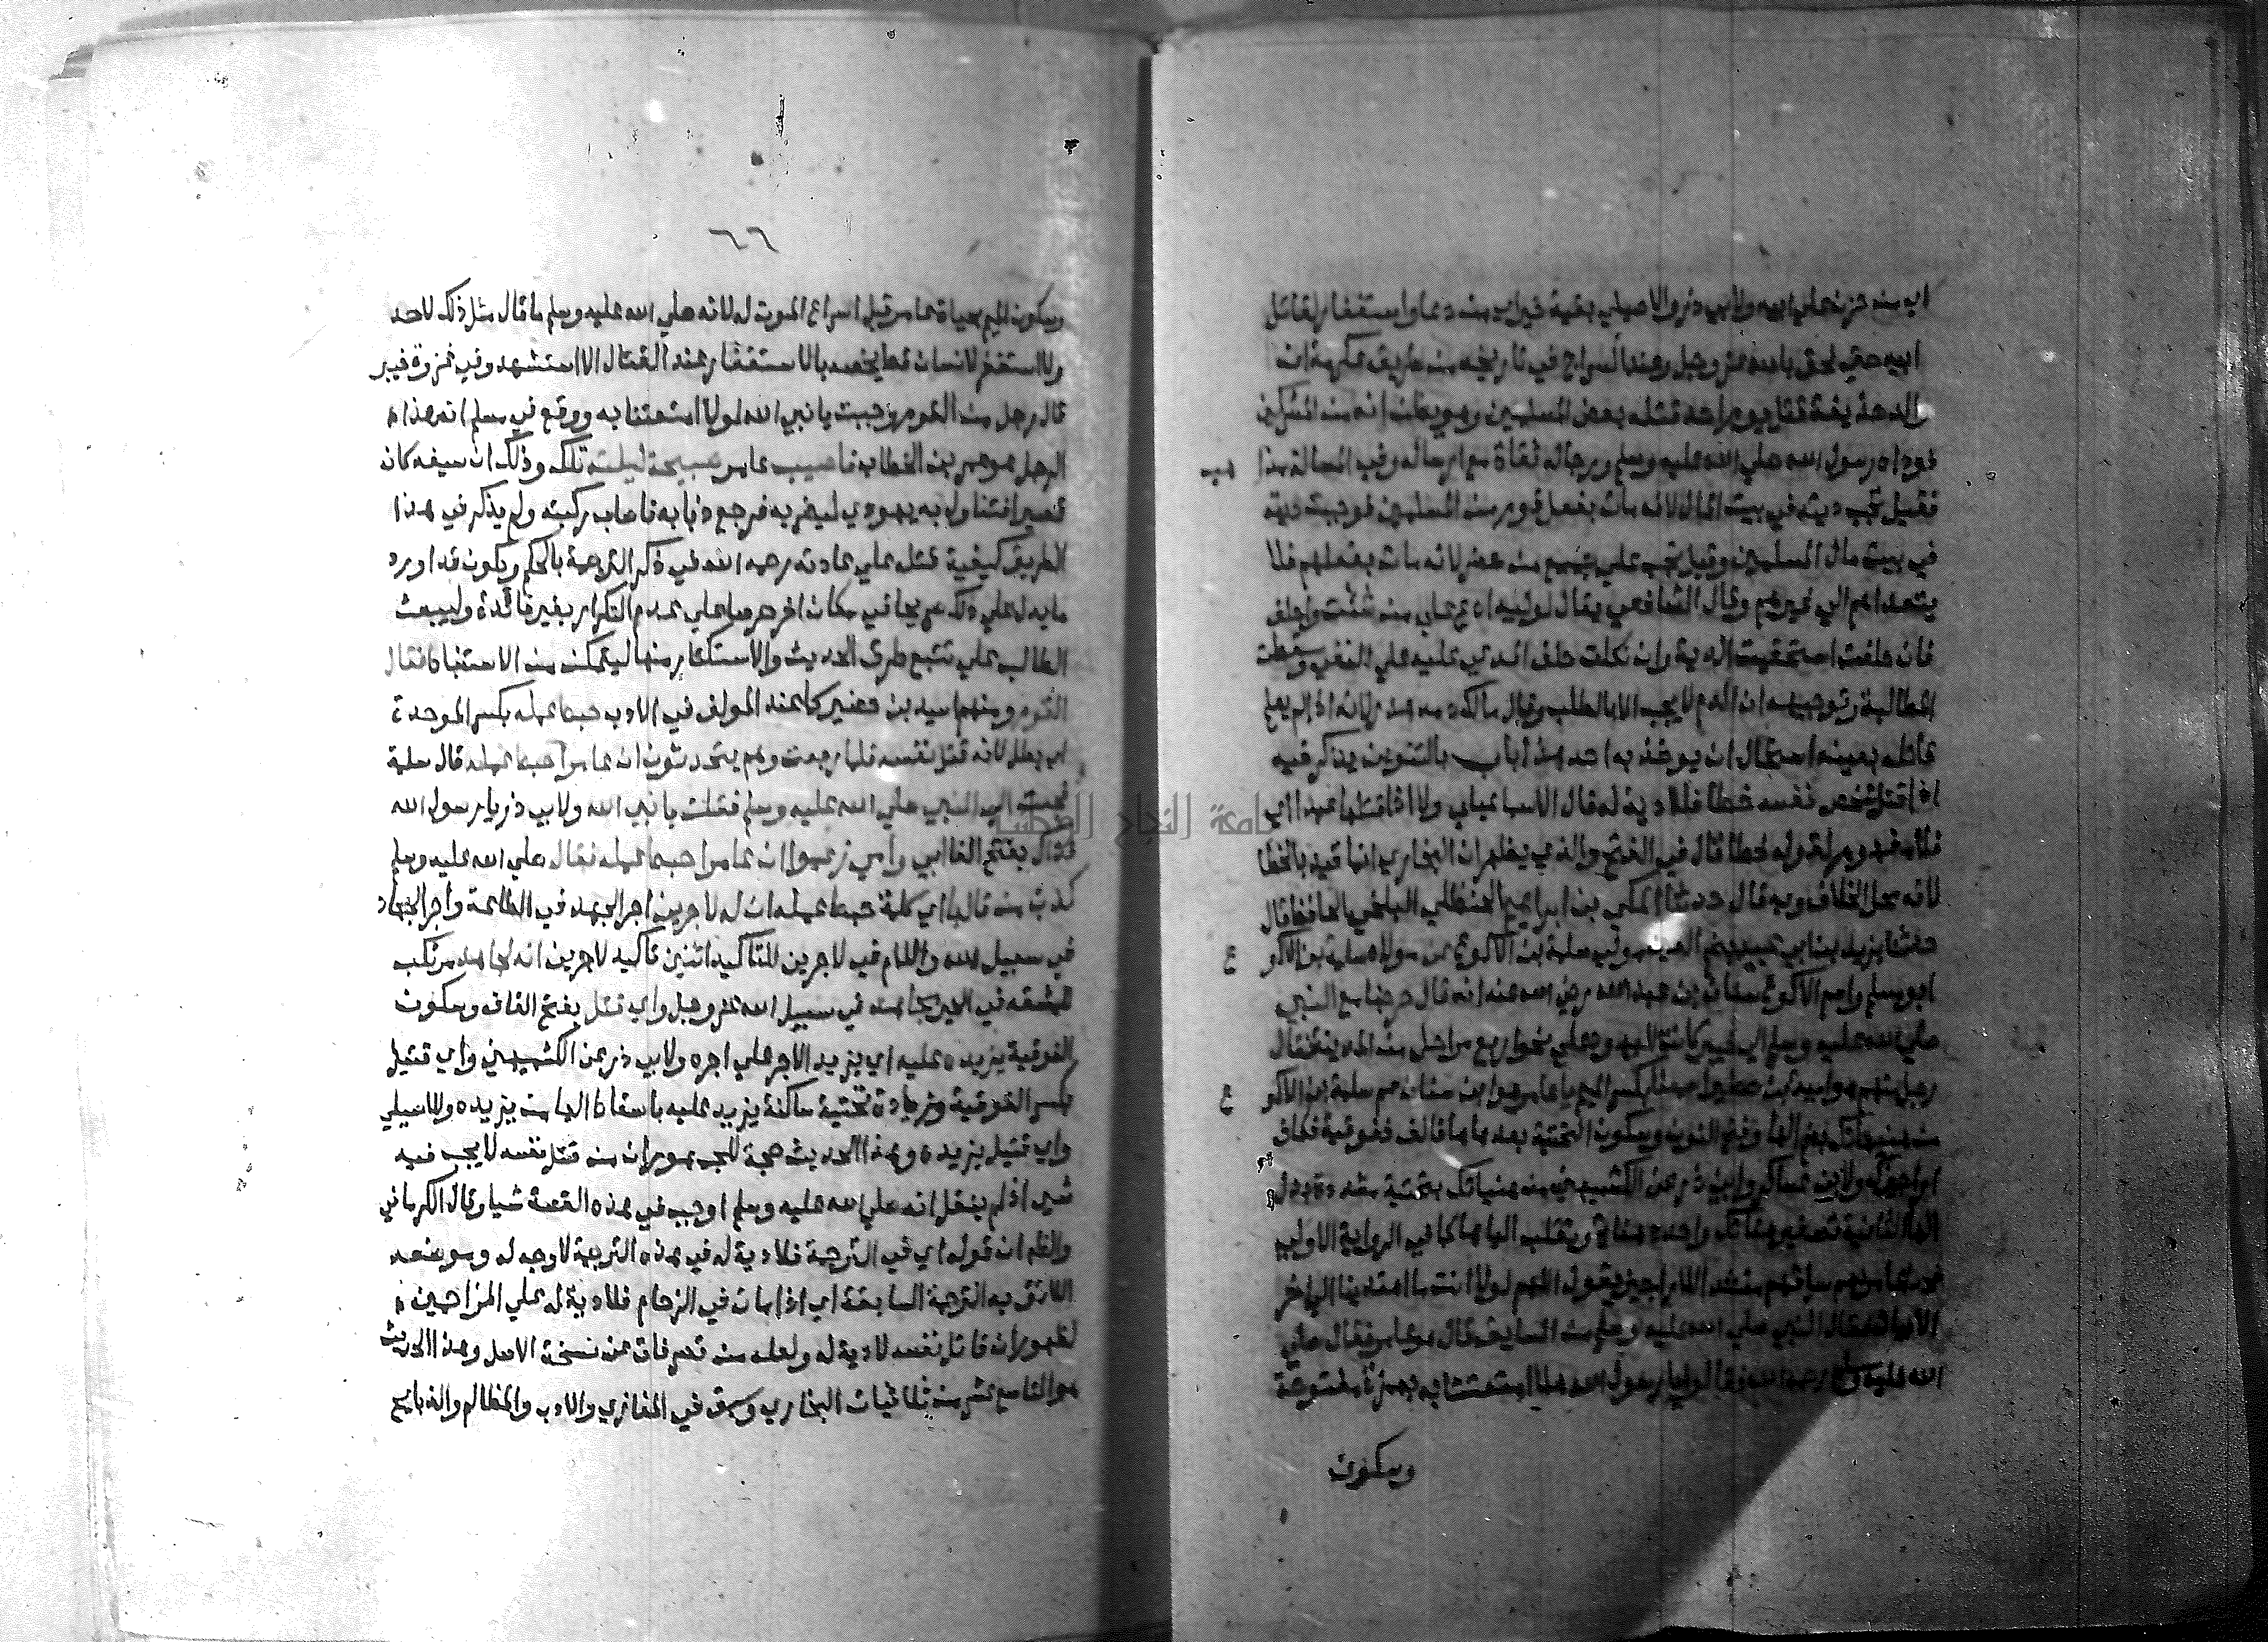 اي من حزن علي ابيه ولابي ذر والاصيلي بقية خير اي من دعا واستغفار لقاتل
ابيه حتي لحق بالله عز وجل وعند السراج في تاريخه من طريق عكرمة ان
والد حذيفة قتل يوم احد قتله بعض المسلمين وهو يظن انه من المشركين
فوداه رسول الله صلي الله عليه وسلم ورجاله ثقاة مع ارساله وفي المسالة مذاهب
فقيل تجب ديته في بيت المال لانه مات بفعل قوم من المسلمين فوجبت ديته
في بيت مال المسلمين وقيل تجب علي جميع من حضر لانه مات بفعلهم فلا
يتعداهم الي غيرهم وقال الشافعي يقال لوليه ادع علي من شئت واحلف
فان حلفت استحقيت الدية وان نكلت حلف المدعي عليه علي النفي وسقطت
المطالبة وتوجيهه ان الدم لا يجب الا بالطلب وقال مالك دمه هدر لانه اذا لم يعلم
قاتله بعينه استحال ان يوخذ به احد هذا باب بالتنوين يذكر فيه
اذا قتل شخص نفسه خطا فلا دية له قال الاسماعيلي ولا اذا قتلها عمدا اي
فلا مفهوم لقوله خطا قال في الفتح والذي يظهر ان البخاري انما قيد بالخطا
لانه محل الخلاف وبه قال حدثنا المكي بن ابراهيم الحنظلي البلخي الحافظ قال
حدثنا يزيد بن ابي عبيد بضم العين مولي سلمة بن الاكوع عن مولاه سلمة بن الاكوع
ابو مسلم واسم الاكوع سنان بن عبد الله رضي الله عنه انه قال خرجنا مع النبي
صلي الله عليه وسلم الي خيبر كانت لليهود علي نحو اربع مراحل من المدينة فقال
رجل منهم هو اسيد بن حضير اسمعنا بكسر الميم يا عامر هو ابن سنان عم سلمة بن الاكوع
من هنيهاتك بضم الها وفتح النون وسكون التحتية بعدها ها فالف ففوقية فكاف
اراجيزك ولابن عساكر وابي ذر عن الكشميهني من هنياتك بتحتية مشددة بدل
الها الثانية تصغير هناتك واحده هناة وتقلب اليا ها كما في الرواية الاولي
فحدا عامر بهم ساقهم منشد الاراجيز يقول اللهم لولا انت ما اهتدينا الي اخر
الابيات فقال النبي صلي الله عليه وسلم من السايق قال عامر فقال صلي
الله عليه وسلم رحمه الله فقالوا يا رسول الله هلا امتعتنا به بهمزة مفتوحة
وسكون
٦٦
وسكون الميم بحياة عامر قبل اسراع الموت له لانه صلي الله عليه وسلم ما قال مثل ذلك لاحد
ولا استغفر لانسان قط يخصه بالاستغفار عند القتال الا استشهد وفي غزوة خيبر
قال رجل من القوم وجبت يا نبي الله لولا امتعتنا به ووقع في مسلم ان هذا
الرجل عمر بن الخطاب فاصيب عامر صبيحة ليلته تلك وذلك ان سيفه كان
قصيرا فتناول به يهودي ليضربه فرجع ذبابه فاصاب ركبته ولم يذكر في هذا
الطريق كيفية قتله علي عادته رحمه الله في ذكر الترجمة بالحكم ويكون قد اورد
ما يدل علي ذلك صريحا في مكان اخر حرصا علي عدم التكرار بغير فائدة وليبعث
الطالب علي تتبع طرق الحديث والاستكثار منها ليتمكن من الاستنباط فقال
القوم ومنهم اسيد بن حضير كما عند المولف في الادب حبط عمله بكسر الموحدة
اي بطل لانه قتل نفسه فلما رجعت وهم يتحدثون ان عامرا حبط عمله قال سلمة
فجيت الي النبي صلي الله عليه وسلم فقلت يا نبي الله ولابي ذر يا رسول الله
فداك بفتح الفا ابي وامي زعموا ان عامرا حبط عمله فقال صلي الله عليه وسلم
كذب من قالها اي كلمة حبط عمله ان له لاجرين اجر الجهد في الطاعة واجر الجهاد
في سبيل الله واللام في لاجرين للتاكيد اثنين تاكيد لاجرين انه لجاهد مرتكب
للمشقة في الخير مجاهد في سبيل الله عز وجل واي قتل بفتح القاف وسكون
الفوقية يزيده عليه اي يزيد الاجر علي اجره ولابي ذر عن الكشميهني واي قتيل
بكسر الفوقية وزيادة تحتية ساكنة يزيد عليه باسقاط الها من يزيده وللاصيلي
واي قتيل يزيده وهذا الحديث حجة للجمهور ان من قتل نفسه لا يجب فيه
شي اذ لم ينقل انه صلي الله عليه وسلم اوجب في هذه القصة شيا وقال الكرماني
والظاهر ان قوله اي في الترجمة فلا دية له في هذه الترجمة لا وجه له وموضعه
اللائق به الترجمة السابقة اي اذا مات في الزحام فلا دية له علي المزاحمين
لظهور ان قاتل نفسه لا دية له ولعله من تصرفات عن نسخة الاصل وهذا الحديث
هو التاسع عشر من ثلاثيات البخاري وسبق في المغازي والادب والمظالم والذبايح
جامعة النجاح الوطنية